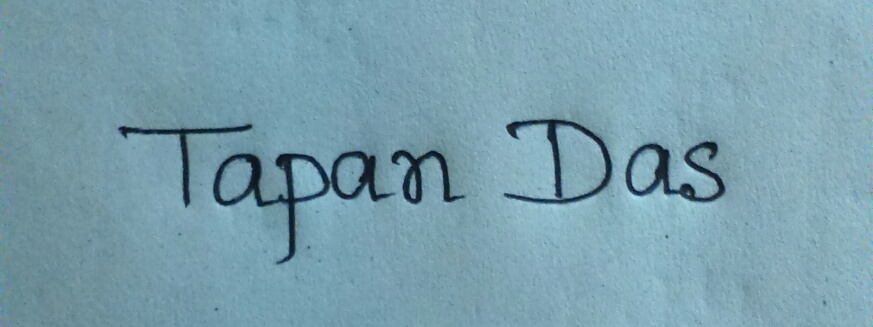 Tapan Das